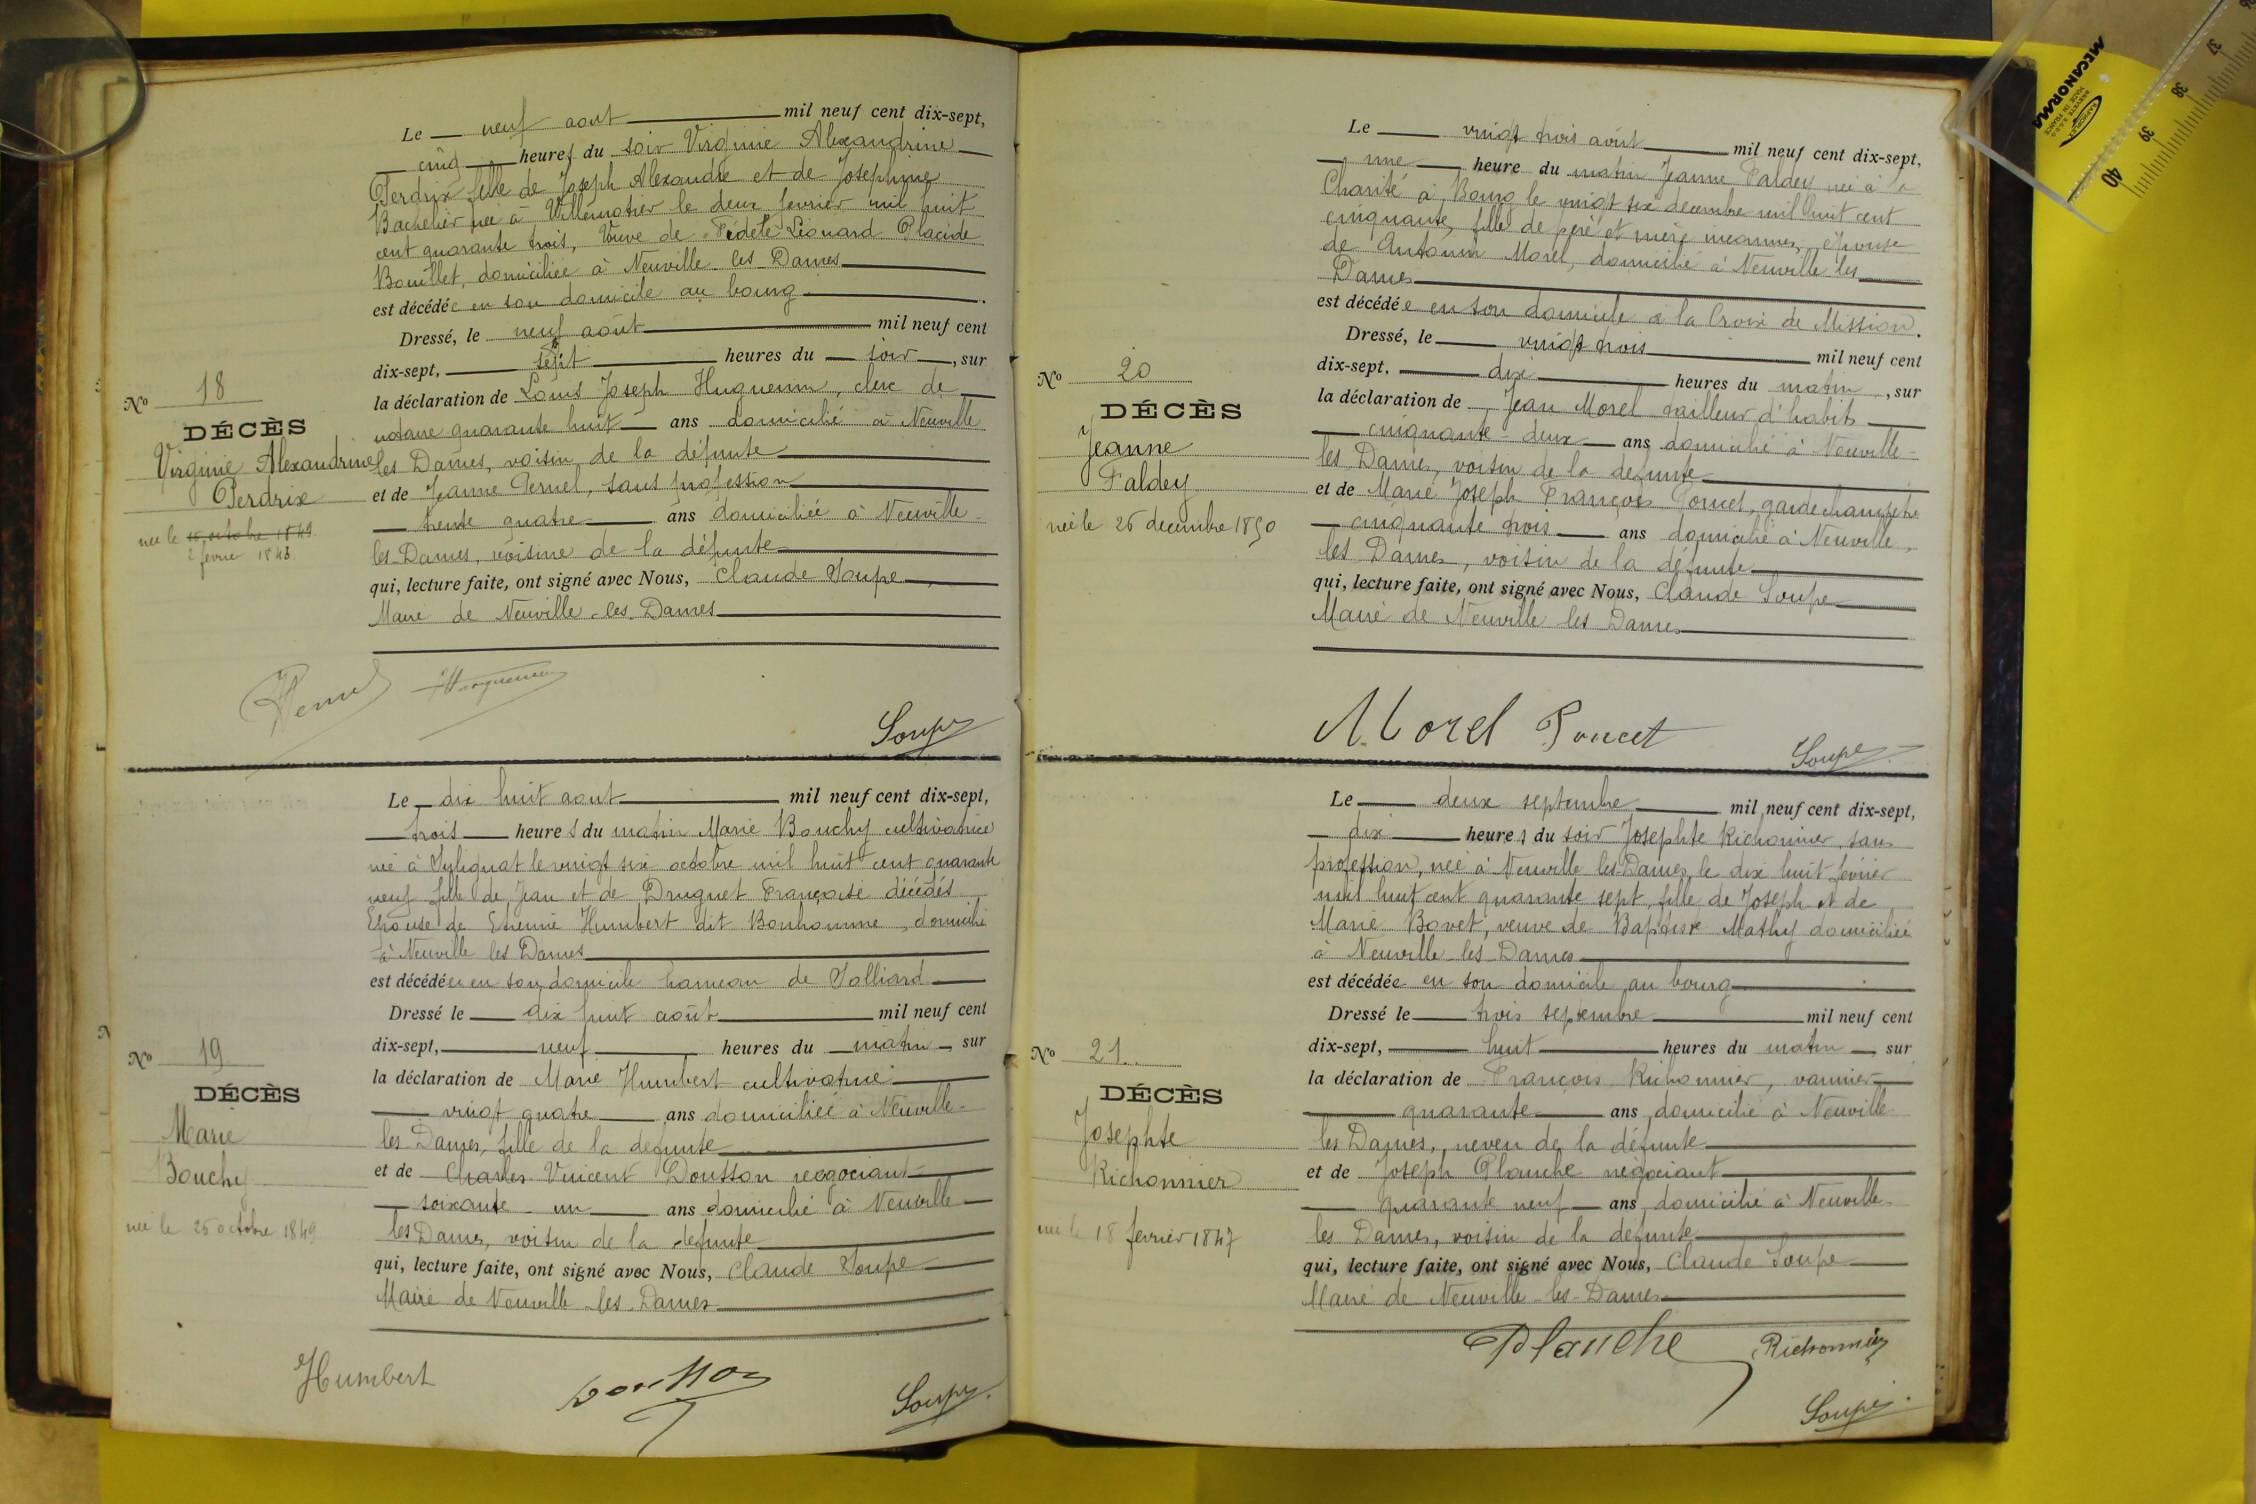 Le neuf aout mil neuf cent dix-sept,
cinq heures du soir Virginie Alexandrine
Perdrix fille de Joseph Alexandre et de Josephine
Bachelier née à Villemotier le deux fevrier mil huit
cent quarante trois, Veuve de Fidèle Léonard Placide
Bouillet, domiciliée à Neuville les Dames
est décédée en son domicile au bourg.
Dressé, le neuf août mil neuf cent
dix-sept, sept heures du soir, sur
la déclaration de Louis Joseph Huguenin, clerc de
notaire quarante huit ans domicilié à Neuville
les Dames, voisin de la défunte
et de Jeanne Pernel, sans profession
trente quatre ans domiciliée à Neuville-
les-Dames, voisine de la défunte
qui, lecture faite, ont signé avec Nous, Claude Soupe,
Maire de Neuville-les-Dames
No 18
DÉCÈS
Virginie Alexandrine
Perdrix
née le 15 octobre 1849.
2 fevrier 1843
Pernel Huguenin
Soupe
Le dix huit aout mil neuf cent dix-sept,
trois heures du matin Marie Bouchy cultivatrice
née à Sulignat le vingt six octobre mil huit cent quarante
neuf fille de Jean et de Druguet Françoise décédés
Epouse de Etienne Humbert dit Bonhomme, domicilié
à Neuville les Dames
est décédée en son domicile hameau de
Dressé le dix huit août mil neuf cent
dix-sept, neuf heures du matin, sur
la déclaration de Marie Humbert cultivatrice
vingt quatre ans domiciliée à Neuville-
les Dames, fille de la defunte
et de Charles Vincent Dousson negociant
soixante-un ans domicilié à Neuville
les Dames, voisin de la defunte
qui, lecture faite, ont signé avec Nous, Claude Soupe
Maire de Neuville-les-Dames
No 19
DÉCÈS
Marie
Bouchy
née le 26 octobre 1849
Humbert Dousson
Soupe.
Le vingt trois août mil neuf cent dix-sept,
une heure du matin Jeanne Faldey née à la
Charité à Bourg le vingt six decembre mil huit cent
cinquante, fille de père et mère inconnus, épouse
de Antonin Morel, domicilié à Neuville les
Dames
est décédée en son domicile à la Croix de Mission.
Dressé, le vingt trois mil neuf cent
dix-sept, dix heures du matin, sur
la déclaration de Jean Morel tailleur d'habits
cinquante-deux ans domicilié à Neuville-
les Dames, voisin de la defunte
et de Marie Joseph François Poncet, garde champêtre
cinquante trois ans domicilié à Neuville,
les Dames, voisin de la défunte
qui, lecture faite, ont signé avec Nous, Claude Soupe
Maire de Neuville les Dames
No 20
DÉCÈS
Jeanne
Faldey
née le 26 decembre 1850
Morel Poncet
Soupe
Le deux septembre mil neuf cent dix-sept,
dix heures du soir Josephte Richonnier, sans
profession, née à Neuville les-Dames, le dix huit février
mil huit cent quarante sept, fille de Joseph et de
Marie Bovet, veuve de Baptiste Mathy domiciliée
à Neuville-les-Dames
est décédée en son domicile au bourg.
Dressé le trois septembre mil neuf cent
dix-sept, huit heures du matin, sur
la déclaration de François Richonnier, vannier
quarante ans domicilié à Neuville
les Dames, neveu de la défunte
et de Joseph Planche négociant
quarante neuf ans domicilié à Neuville
les Dames, voisin de la defunte
qui, lecture faite, ont signé avec Nous, Claude Soupe
Maire de Neuville-les-Dames
No 21.
DÉCÈS
Josephte
Richonnier
née le 18 fevrier 1847
Planche Richonnier
Soupe.
MECANORMA
MADE IN FRANCE
37
38
39
40